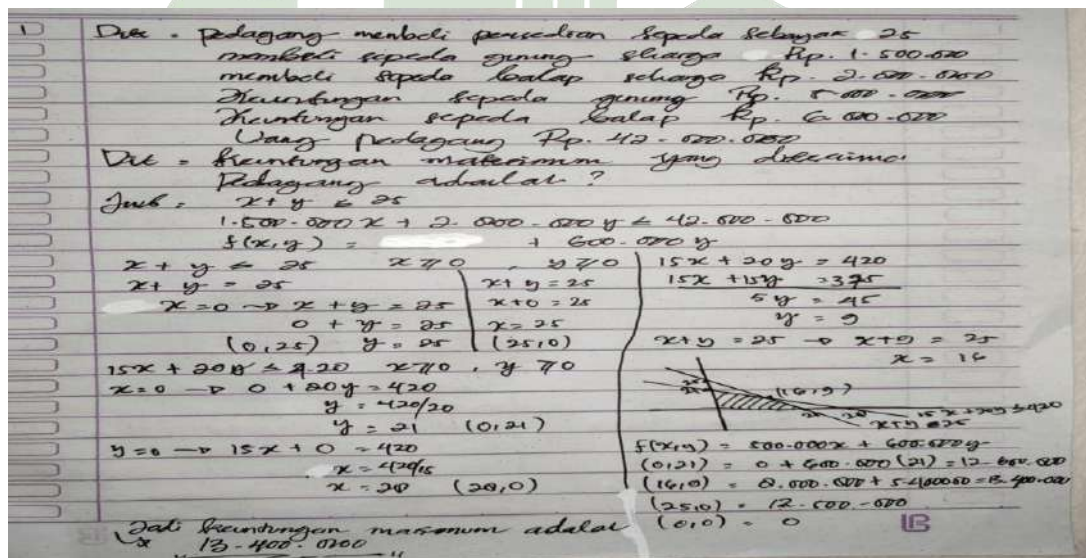 1
Dik : Pedagang membeli persediaan sepeda sebanyak 25
membeli sepeda gunung seharga Rp. 1.500.000
membeli sepeda balap seharga Rp. 2.000.000
Keuntungan sepeda gunung Rp. 5 000.000
Keuntungan sepeda balap Rp. 6 000.000
Uang pedagang Rp. 42.000.000
Dit = Keuntungan maksimum yang diterima
Pedagang adalah ?
Jwb : x + y ≤ 25
1.500.000 x + 2.000.000 y ≤ 42.000.000
f(x,y) = + 600.000 y
x + y ≤ 25 x ≥ 0 , y ≥ 0
x + y = 25
x=0 → x + y = 25
0 + y = 25
(0,25) y = 25
x + y = 25
x + 0 = 25
x = 25
(25,0)
15x + 20y ≤ 420 x ≥ 0 , y ≥ 0
x=0 → 0 + 20y = 420
y = 420/20
y = 21 (0,21)
y=0 → 15x + 0 = 420
x = 420/15
x = 28 (28,0)
15x + 20y = 420
15x + 15y = 375
5y = 45
y = 9
x+y = 25 → x+9 = 25
x = 16
25
21
(16,9)
25 28
15x+20y≤420
x+y=25
f(x,y) = 500.000x + 600.000y
(0,21) = 0 + 600.000 (21) = 12.600.000
(16,9) = 8.000.000 + 5.400000 = 13.400.000
(25,0) = 12.500.000
(0,0) = 0
Jadi keuntungan maksimum adalah
13.400.000